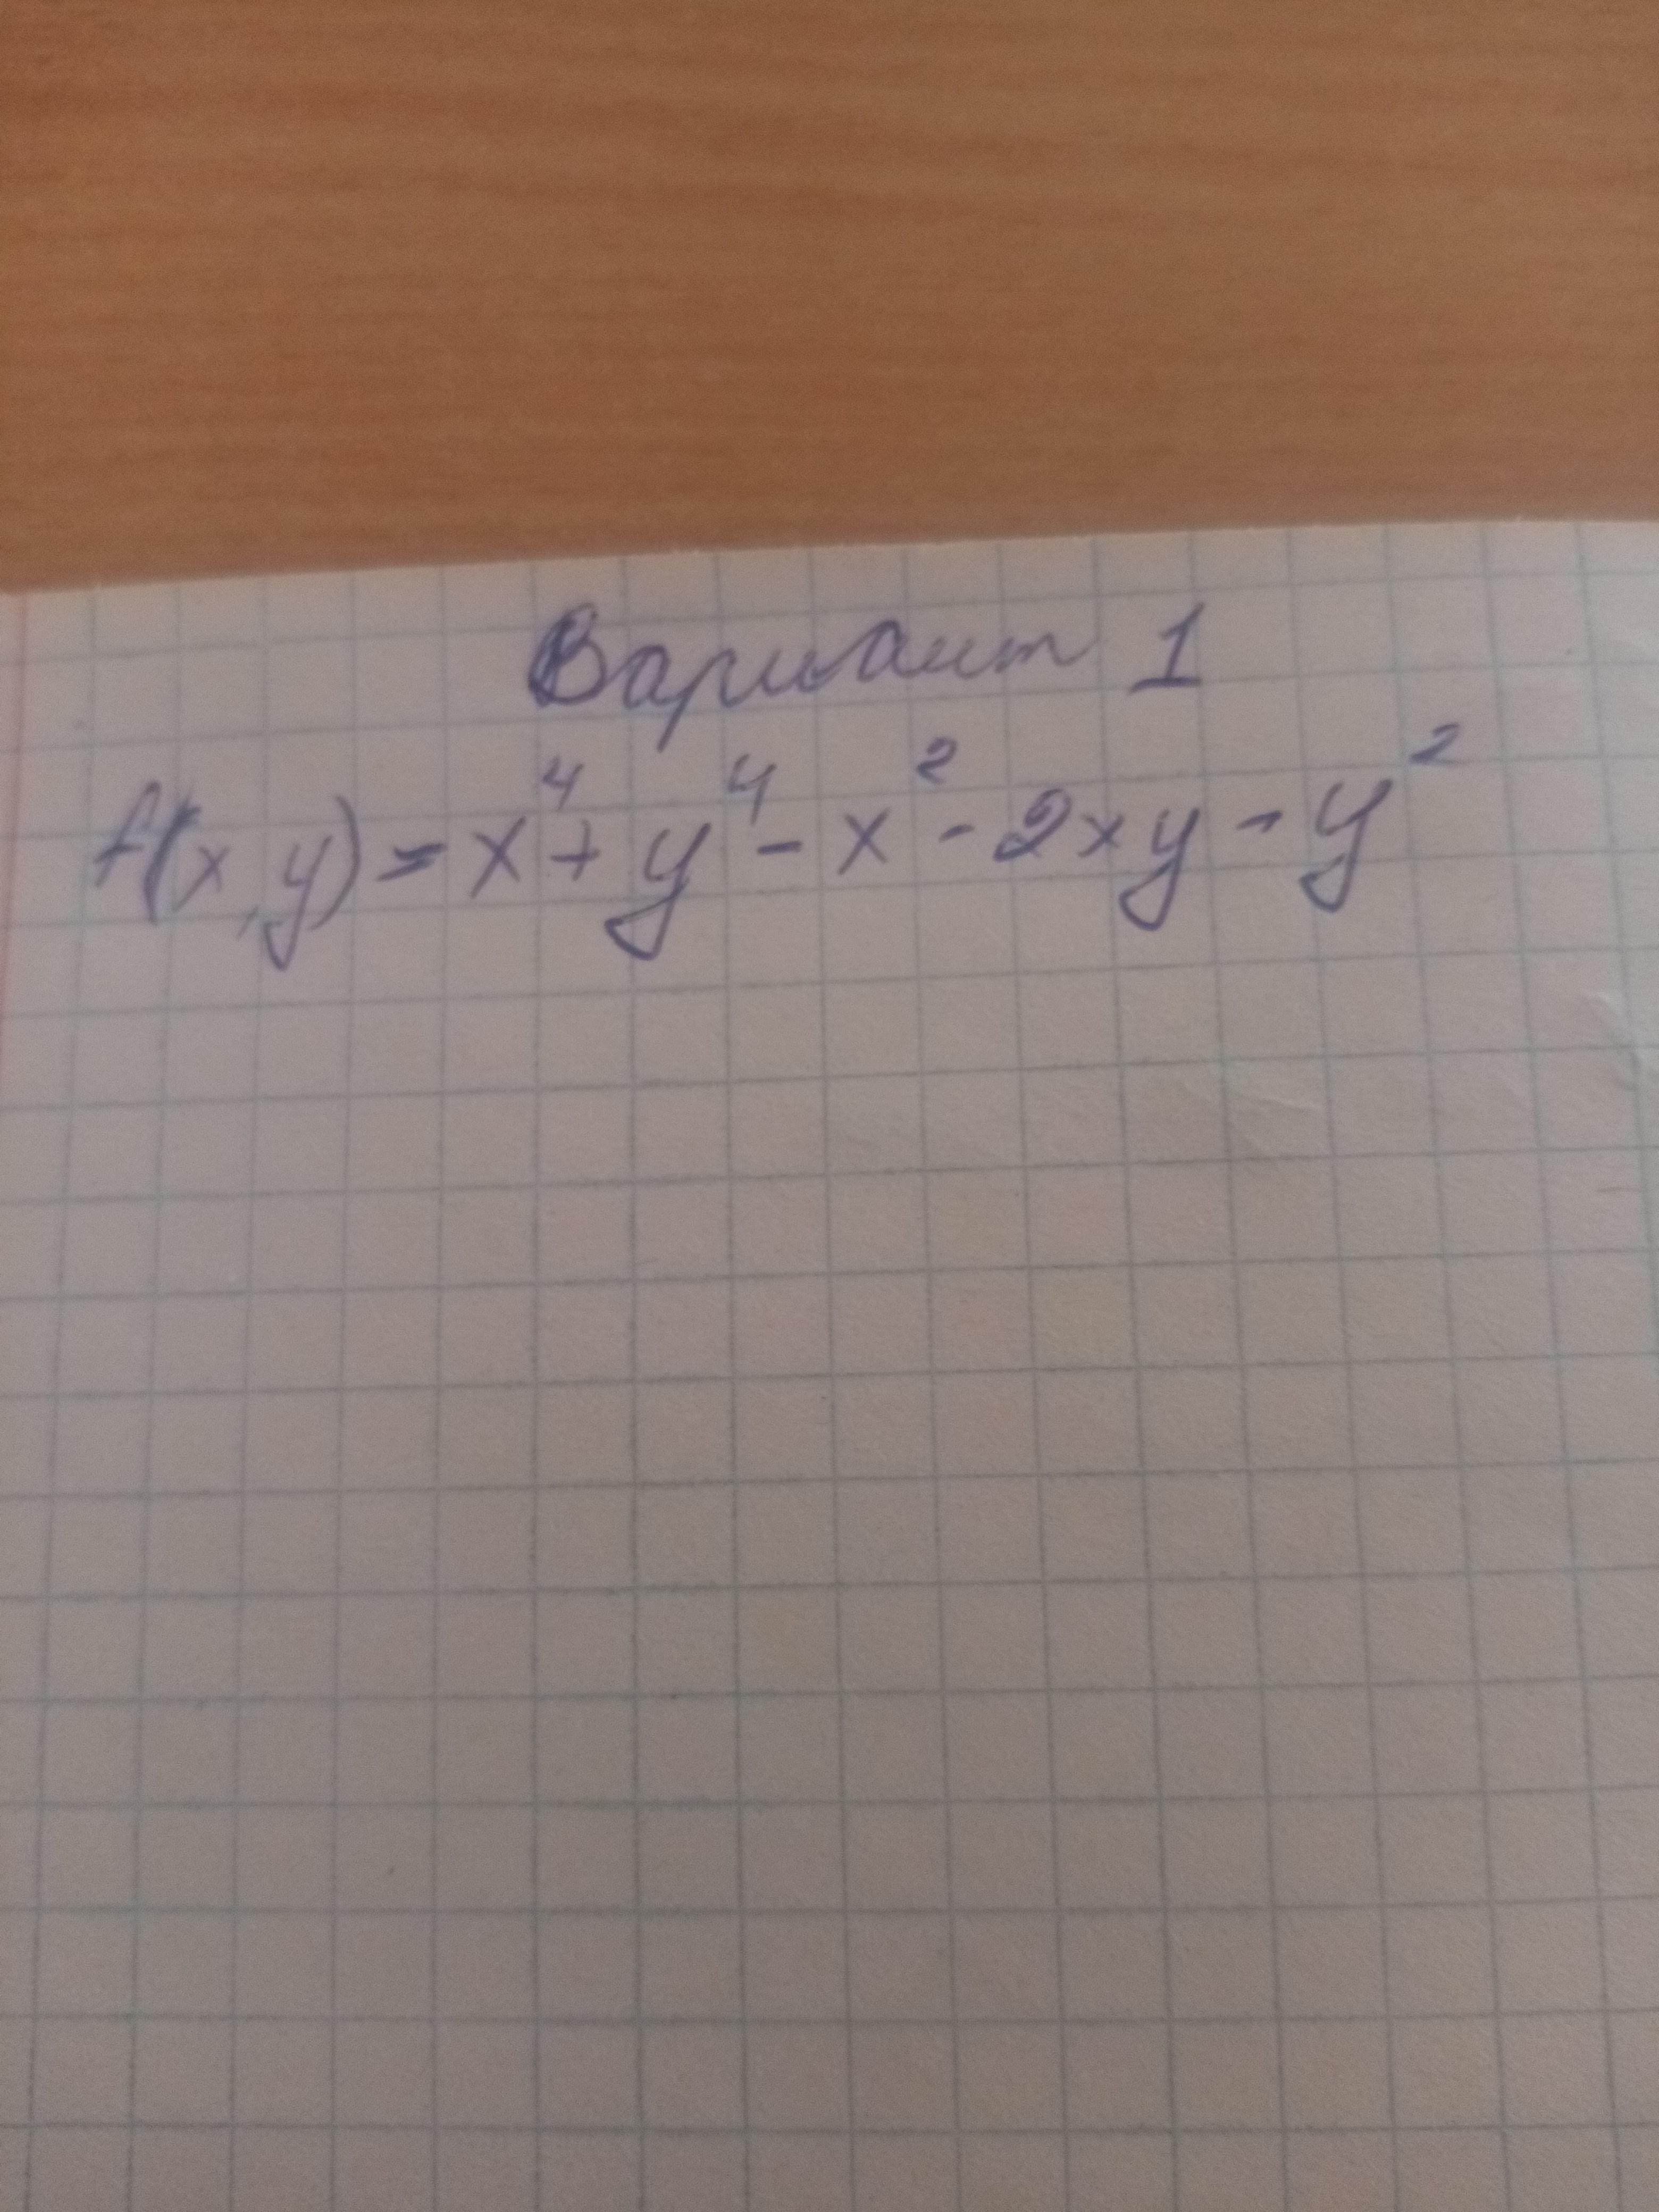 Вариант 1
f(x,y)=x⁴+y⁴-x²-2xy-y²